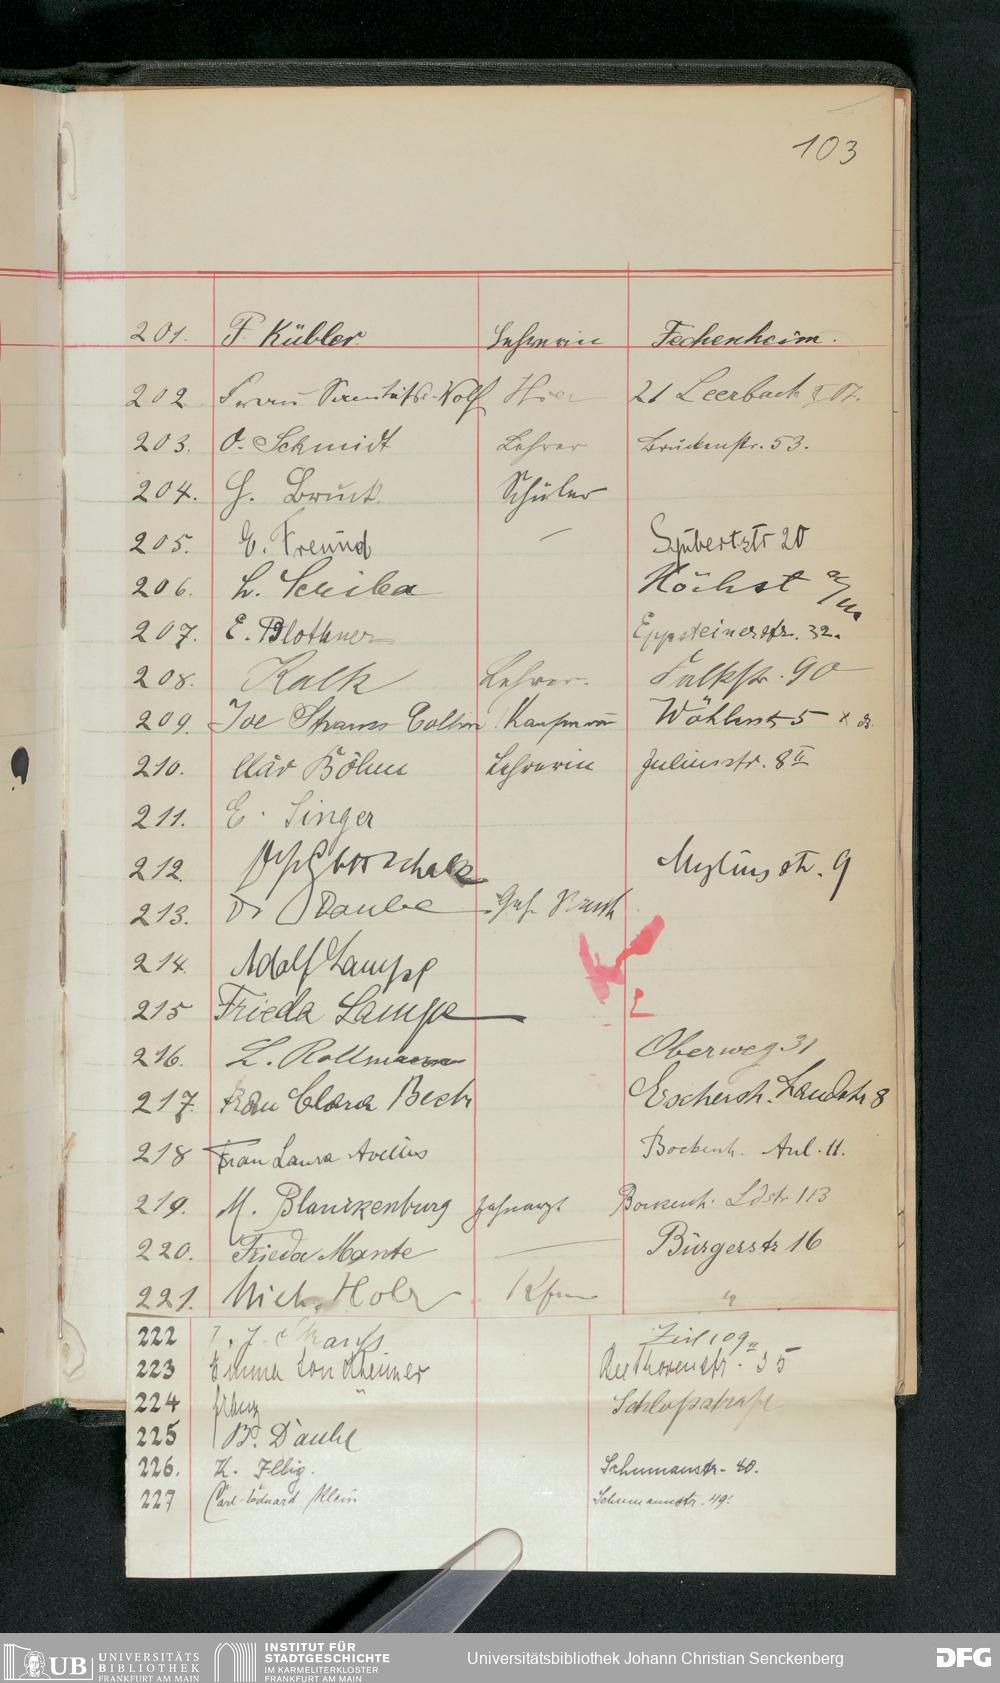 103
201. F. Kübler Lehrerin Fechenheim.
202. Frau Sanitätsr. Wolf Hier 21 Leerbach
203. O. Schmidt Lehrer Brückenstr. 53.
204. G. Bruck Schüler
205. E. Freund — Schubertstr 20
206. L. Scriba Höchst a/M
207. E. Blothner Eppsteinerstr. 32.
208. Kalk Lehrer. Falkstr. 90
209. Strauss Collin Kaufmann Wöhlerstr 5
210. Böhm Lehrerin Juliusstr. 8 II
211. E. Singer
212. Gottschalk Myliusstr. 9
213. Dr Daube
214. Adolf Lampe
215 Frieda Lampe
216. L. Rollmann Oberweg 31
217. Frau Clara Beck Eschersh. Landstr 8
218 Frau Laura Avellis Bockenh. Anl. 11.
219. M. Blanckenburg Zahnarzt Bockenh. Ldstr 113
220. Frieda Mante — Bürgerstr 16
221. Mich. Holz Kfm "
222 J. Strauss Zeil 109
223 Emma Sondheimer Beethovenstr. 35
224 Franz " Schloßstraße
225 B. Daube
226. K. Illig. Schumanstr. 40.
227 Carl-Eduard Klein Schumannstr. 49.
UB UNIVERSITÄTS BIBLIOTHEK FRANKFURT AM MAIN
INSTITUT FÜR STADTGESCHICHTE IM KARMELITERKLOSTER FRANKFURT AM MAIN
Universitätsbibliothek Johann Christian Senckenberg
DFG